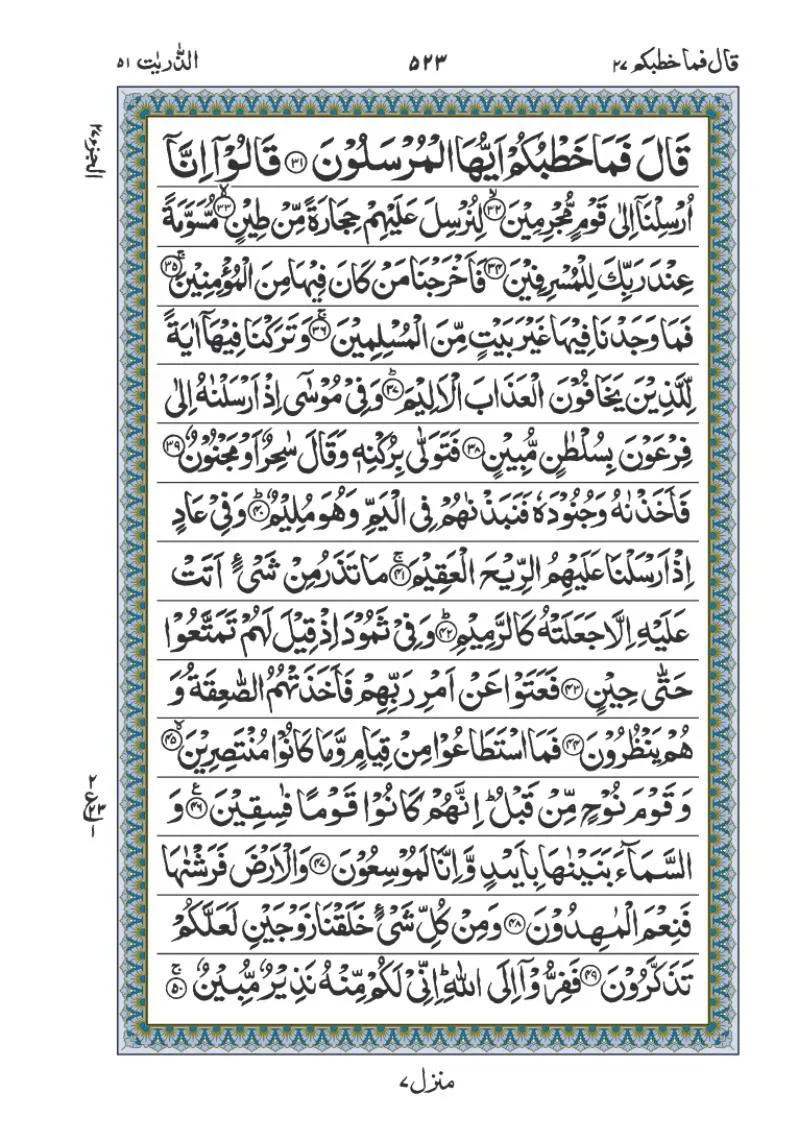 قال فما خطبكم ٢٧
٥٢٣
الذّٰريٰت ٥١
الجزء ٢٧
قَالَ فَمَا خَطْبُكُمْ اَيُّهَا الْمُرْسَلُوْنَ ﴿٣١﴾ قَالُوْۤا اِنَّاۤ
اُرْسِلْنَاۤ اِلٰى قَوْمٍ مُّجْرِمِيْنَ ﴿٣٢﴾ۙ لِنُرْسِلَ عَلَيْهِمْ حِجَارَةً مِّنْ طِيْنٍ ﴿٣٣﴾ۙ مُّسَوَّمَةً
عِنْدَ رَبِّكَ لِلْمُسْرِفِيْنَ ﴿٣٤﴾ فَاَخْرَجْنَا مَنْ كَانَ فِيْهَا مِنَ الْمُؤْمِنِيْنَ ﴿٣٥﴾ۚ
فَمَا وَجَدْنَا فِيْهَا غَيْرَ بَيْتٍ مِّنَ الْمُسْلِمِيْنَ ﴿٣٦﴾ۚ وَ تَرَكْنَا فِيْهَاۤ اٰيَةً
لِّلَّذِيْنَ يَخَافُوْنَ الْعَذَابَ الْاَلِيْمَ ﴿٣٧﴾ؕ وَ فِيْ مُوْسٰۤى اِذْ اَرْسَلْنٰهُ اِلٰى
فِرْعَوْنَ بِسُلْطٰنٍ مُّبِيْنٍ ﴿٣٨﴾ فَتَوَلّٰى بِرُكْنِهٖ وَ قَالَ سٰحِرٌ اَوْ مَجْنُوْنٌ ﴿٣٩﴾
فَاَخَذْنٰهُ وَ جُنُوْدَهٗ فَنَبَذْنٰهُمْ فِي الْيَمِّ وَ هُوَ مُلِيْمٌ ﴿٤٠﴾ؕ وَ فِيْ عَادٍ
اِذْ اَرْسَلْنَا عَلَيْهِمُ الرِّيْحَ الْعَقِيْمَ ﴿٤١﴾ۚ مَا تَذَرُ مِنْ شَيْءٍ اَتَتْ
عَلَيْهِ اِلَّا جَعَلَتْهُ كَالرَّمِيْمِ ﴿٤٢﴾ؕ وَ فِيْ ثَمُوْدَ اِذْ قِيْلَ لَهُمْ تَمَتَّعُوْا
حَتّٰى حِيْنٍ ﴿٤٣﴾ فَعَتَوْا عَنْ اَمْرِ رَبِّهِمْ فَاَخَذَتْهُمُ الصّٰعِقَةُ وَ
هُمْ يَنْظُرُوْنَ ﴿٤٤﴾ فَمَا اسْتَطَاعُوْا مِنْ قِيَامٍ وَّ مَا كَانُوْا مُنْتَصِرِيْنَ ﴿٤٥﴾ۙ
وَ قَوْمَ نُوْحٍ مِّنْ قَبْلُ ؕ اِنَّهُمْ كَانُوْا قَوْمًا فٰسِقِيْنَ ﴿٤٦﴾ۧ وَ
٢
ع
٢٣
١
السَّمَآءَ بَنَيْنٰهَا بِاَيْىدٍ وَّ اِنَّا لَمُوْسِعُوْنَ ﴿٤٧﴾ وَ الْاَرْضَ فَرَشْنٰهَا
فَنِعْمَ الْمٰهِدُوْنَ ﴿٤٨﴾ وَ مِنْ كُلِّ شَيْءٍ خَلَقْنَا زَوْجَيْنِ لَعَلَّكُمْ
تَذَكَّرُوْنَ ﴿٤٩﴾ فَفِرُّوْۤا اِلَى اللّٰهِ ؕ اِنِّيْ لَكُمْ مِّنْهُ نَذِيْرٌ مُّبِيْنٌ ﴿٥٠﴾ۚ
منزل ٧